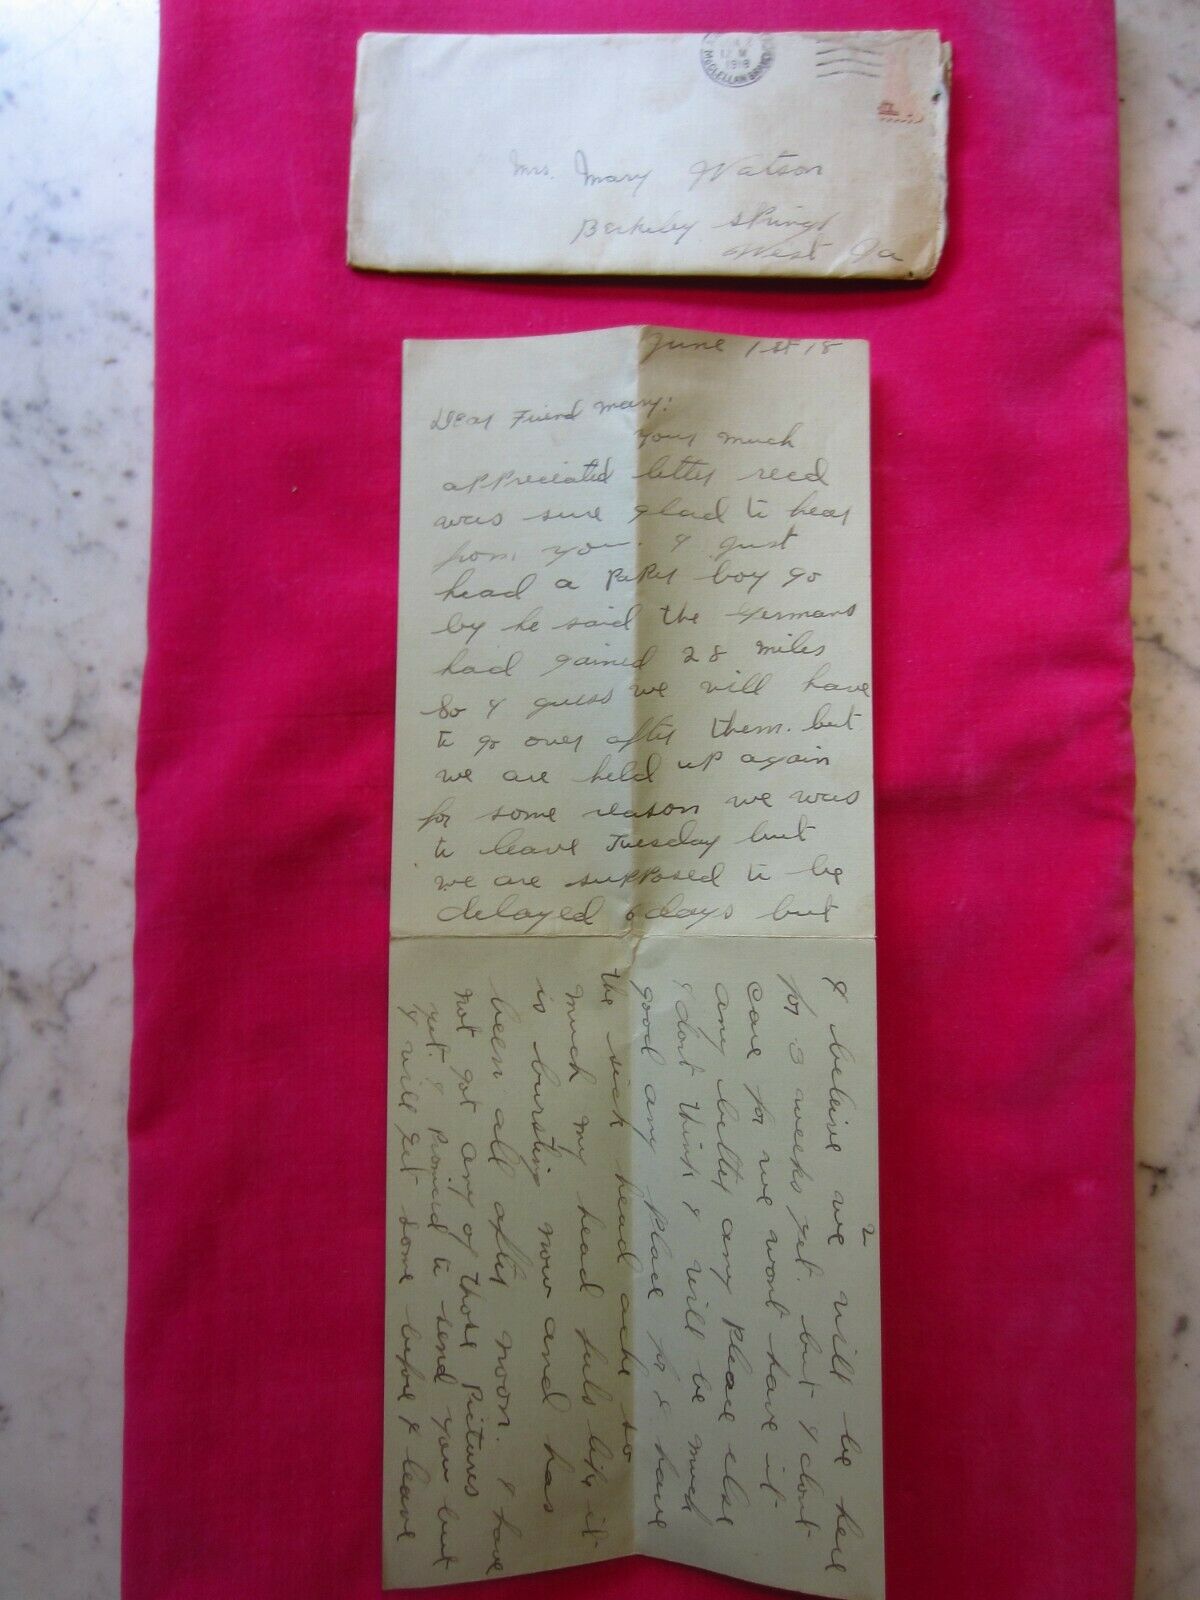 12 M
1918
McCLELLAN BRANCH
Mrs. Mary Watson
Berkeley Springs
West Va
June 1st 18
Dear Friend Mary:
Your much
appreciated letter recd
was sure glad to hear
from you. I just
head a paper boy go
by he said the Germans
had gained 28 miles
So I guess we will have
to go over after them. but
we are held up again
for some reason we was
to leave Tuesday but
we are supposed to be
delayed 6 days but
2
I believe we will be here
for 3 weeks yet. but I dont
care for we wont have it
any better any place else
I dont think I will be much
good any place for I have
the sick head ache so
much my head fuls like it
is bursting now and has
been all after noon. I have
not got any of those Pictures
yet. I promiced to send you but
I will get some before I leave